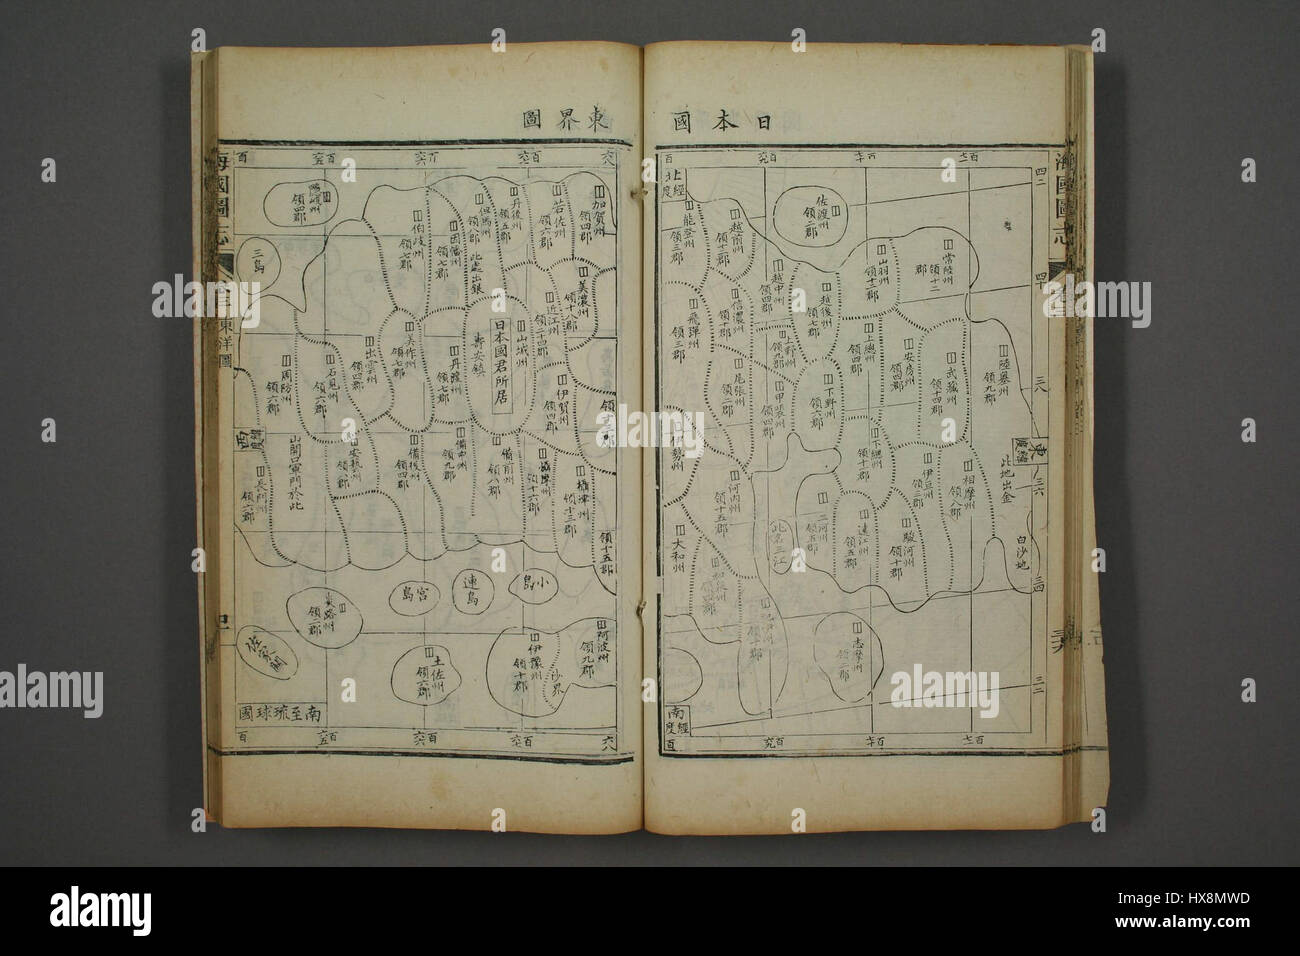 日本國
東界圖
海國圖志
北
經度
佐渡州
領二郡
常陸州
領十二郡
山羽州
領十二郡
越後州
領七郡
越中州
領四郡
越前州
領十二郡
能登州
領三郡
陸墓州
領九郡
武藏州
領十四郡
安房州
領四郡
上總州
領四郡
上野州
領九郡
信濃州
領十郡
飛驒州
領三郡
下野州
領六郡
甲斐州
領四郡
尾張州
領二郡
下總州
領十二郡
伊豆州
領三郡
相摩州
領八郡
此地出金
白沙地
駿河州
領十郡
遠江州
領五郡
三河州
領五郡
此名三江
河內州
領十五郡
伊勢州
大和州
志摩州
領二郡
南
經度
加賀州
領四郡
若佐州
領六郡
丹後州
領五郡
但馬州
領八郡
此處出銀
因幡州
領七郡
伯歧州
領七郡
領四郡
三島
美濃州
領十八郡
近江州
領二十四郡
山城州
日本國君所居
壽安鎮
丹波州
領七郡
美作州
領七郡
出雲州
領四郡
石見州
領六郡
周防州
領六郡
伊賀州
領四郡
領十三郡
領十五郡
領十六郡
備前州
領八郡
備中州
領九郡
備後州
領四郡
安藝州
領郡
山關口軍門於此
長門州
領六郡
酉
小島
連島
宮島
淡路州
領二郡
阿波州
領九郡
伊豫州
領十郡
沙界
土佐州
領六郡
佐家關
南至琉球國
東洋圖
alamy
Image ID: HX8MWD
www.alamy.com